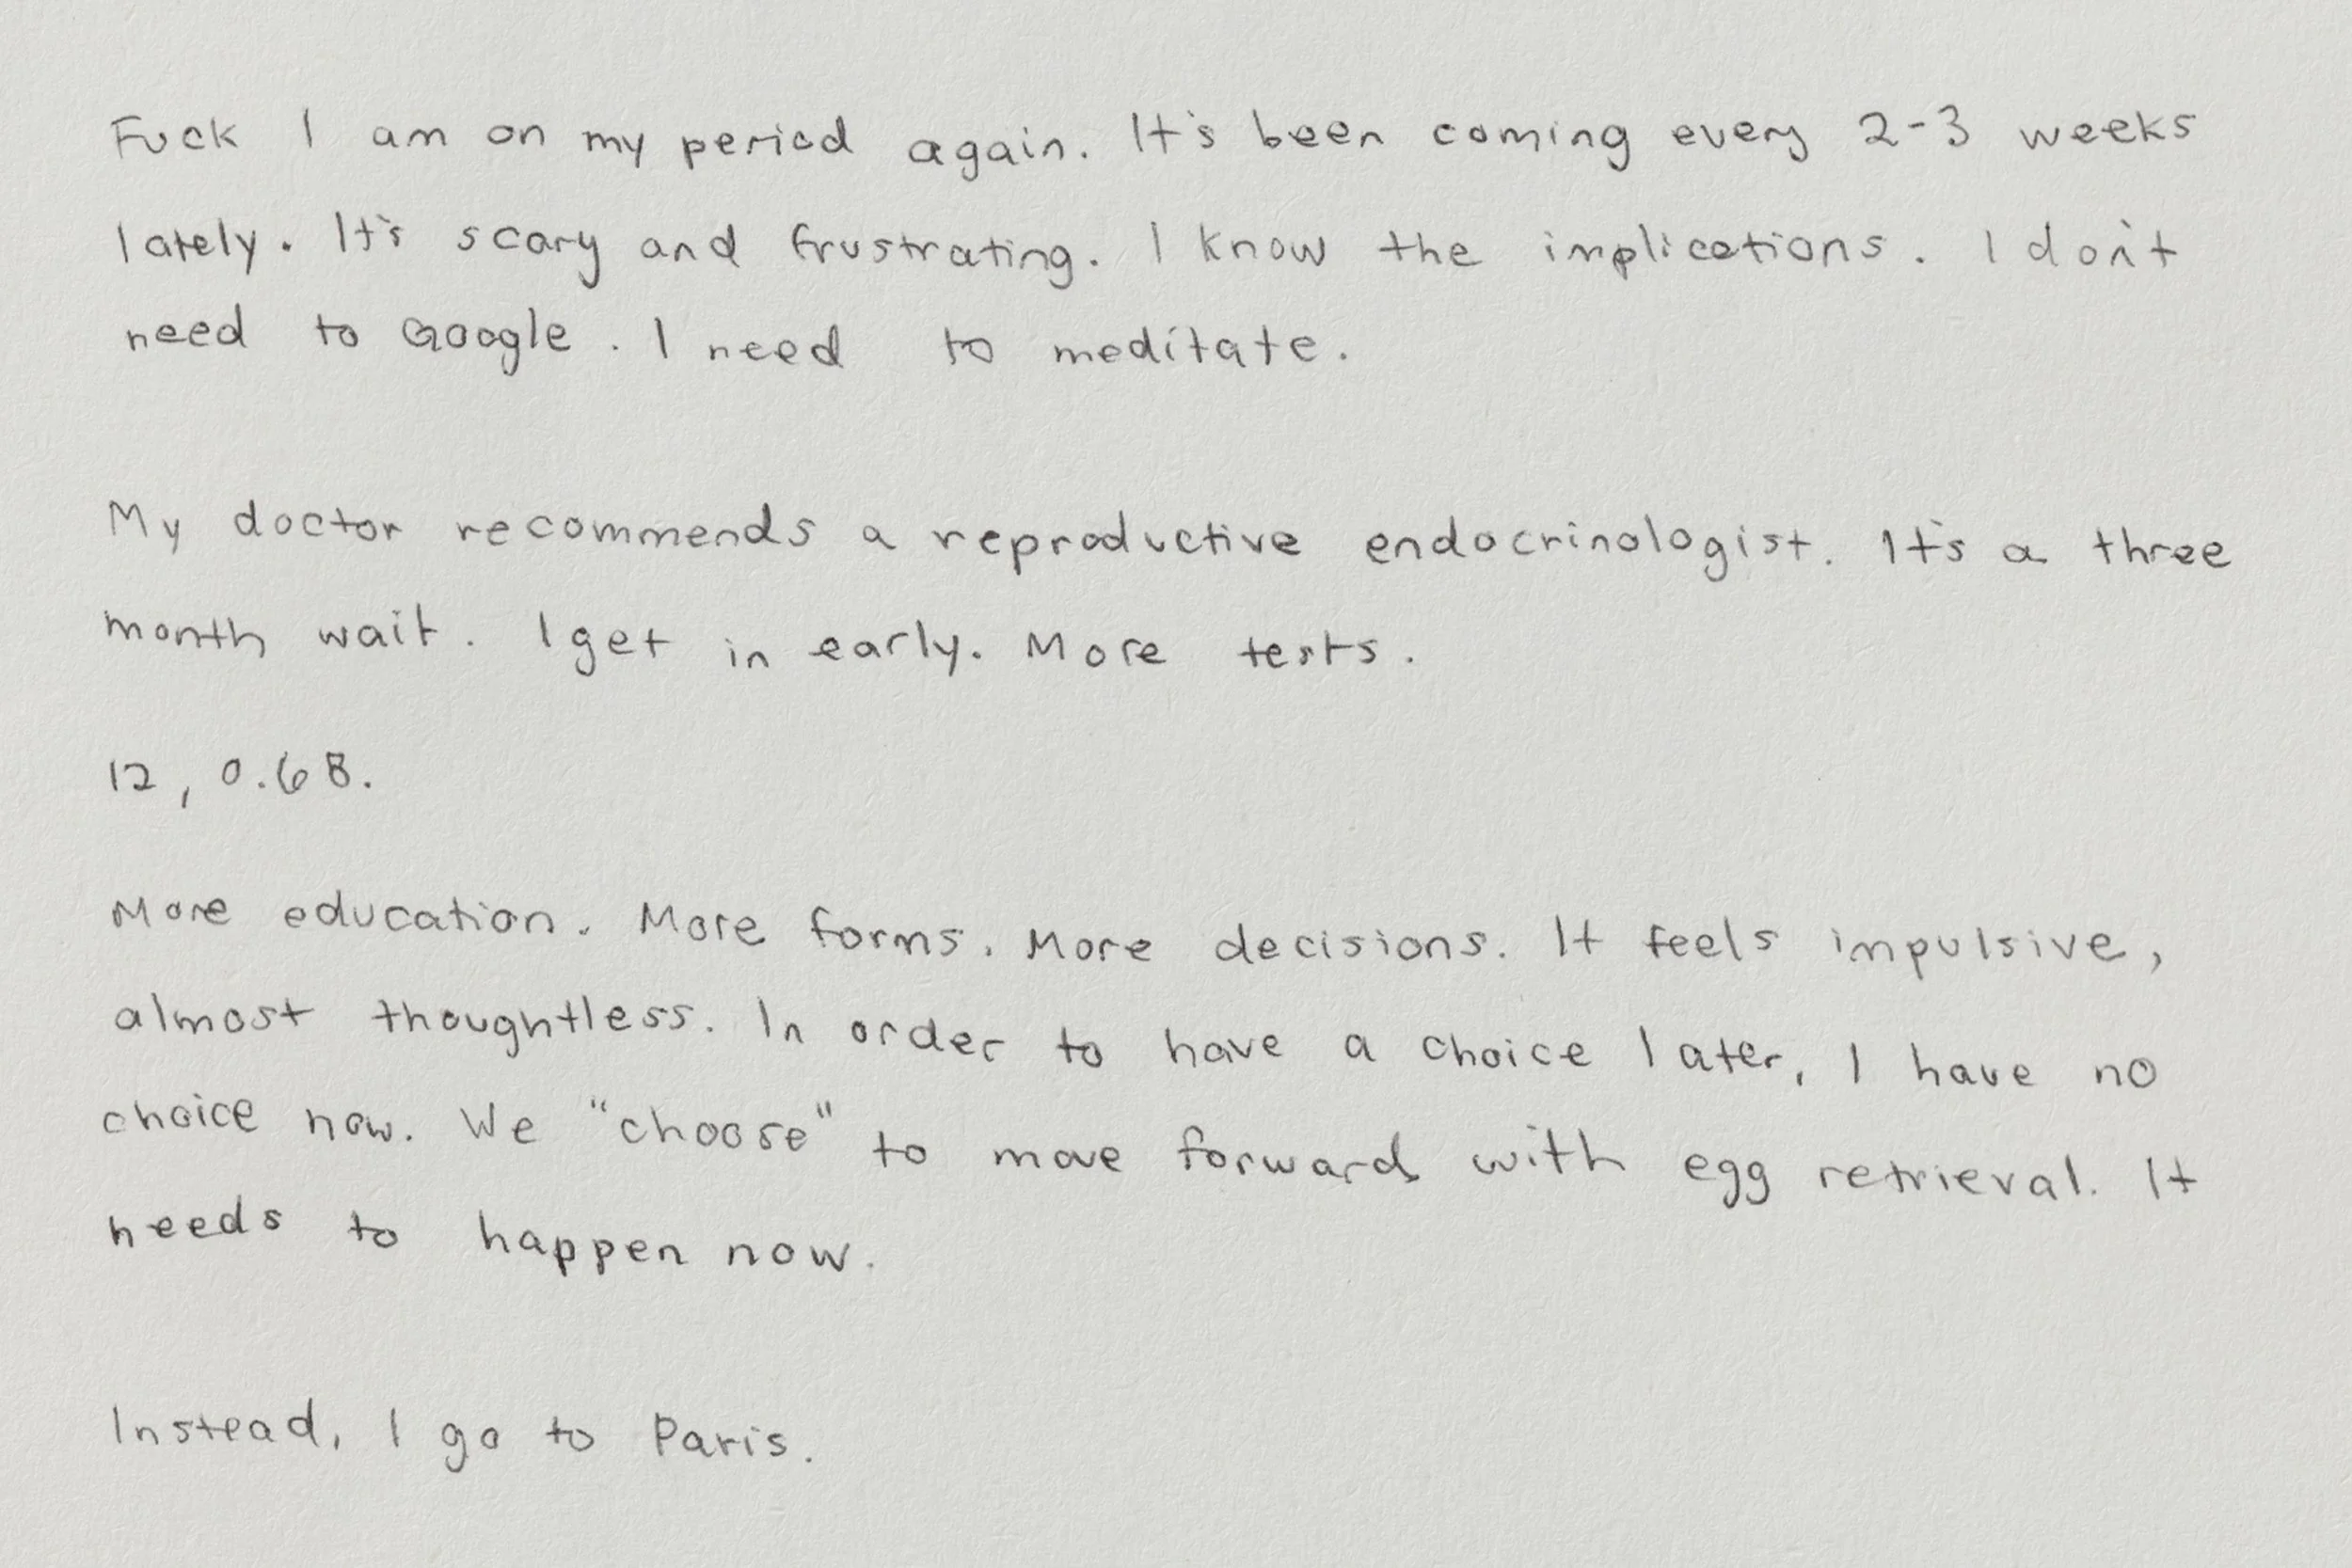 Fuck I am on my period again. It's been coming every 2-3 weeks
lately. It's scary and frustrating. I know the implications. I don't
need to Google. I need to meditate.
My doctor recommends a reproductive endocrinologist. It's a three
month wait. I get in early. More tests.
12, 0.68.
More education. More forms. More decisions. It feels impulsive,
almost thoughtless. In order to have a choice later, I have no
choice now. We "choose" to move forward with egg retrieval. It
needs to happen now.
Instead, I go to Paris.